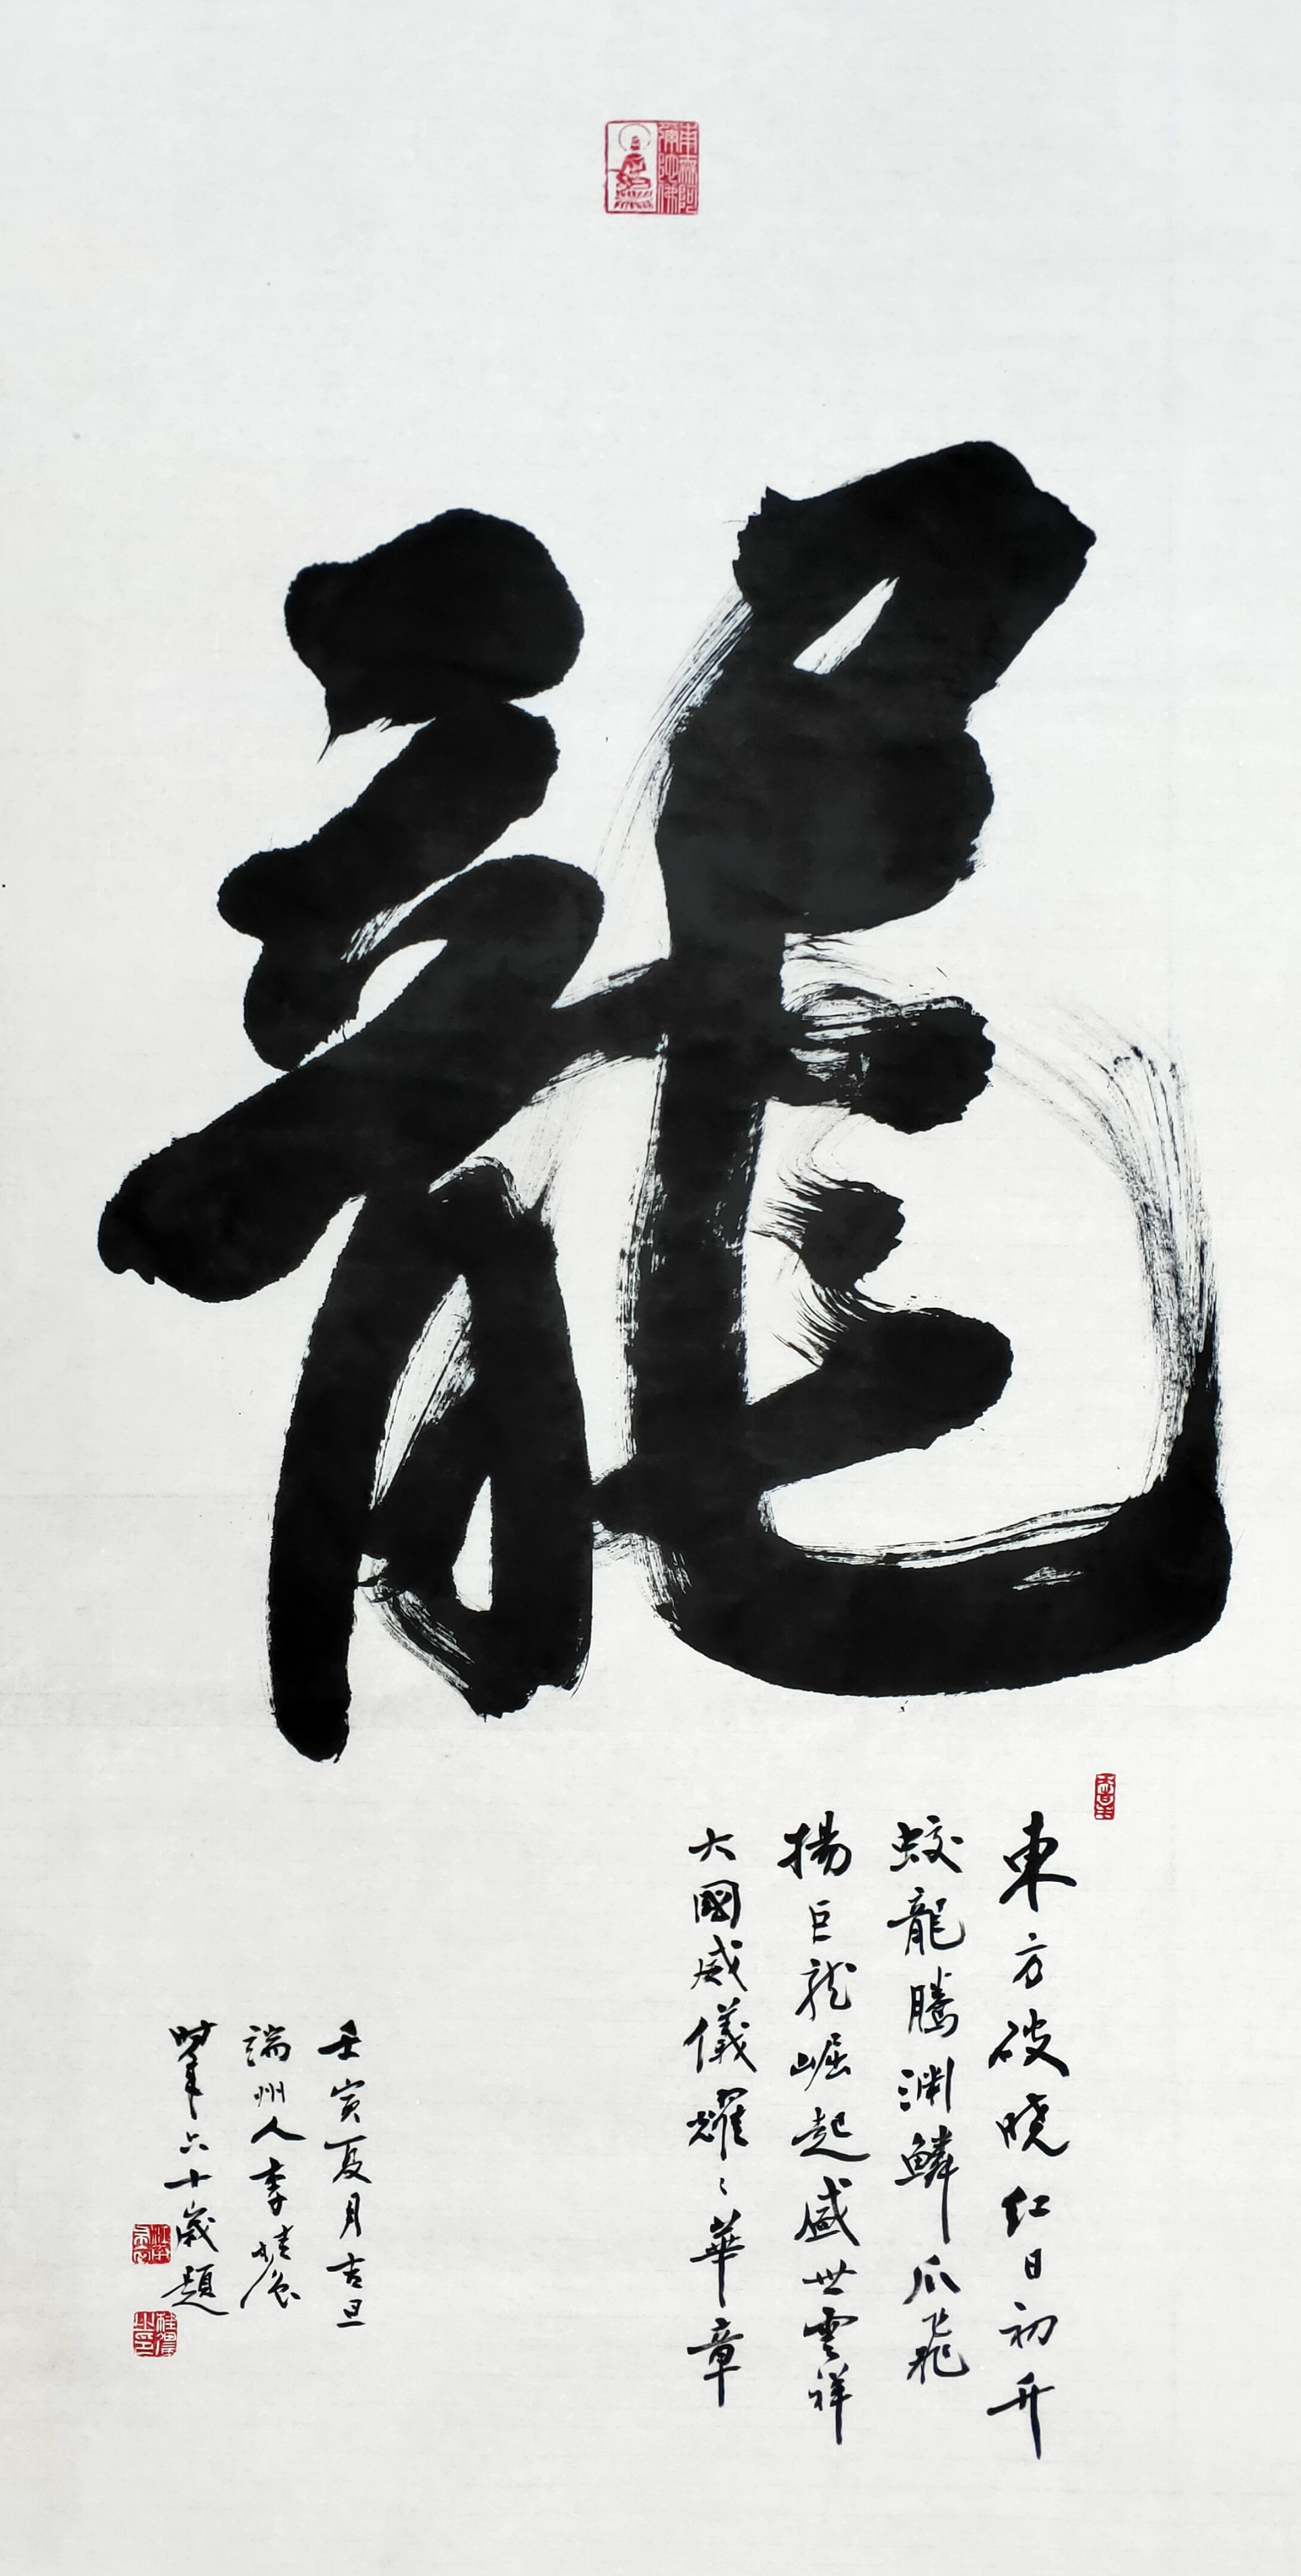 南無阿
彌陀佛
龍
東方破曉红日初升
蛟龍騰渊鱗爪飛
揚巨龙崛起盛世雲祥
大國威儀耀々華章
壬寅夏月吉旦
端州人李
时年六十歲題